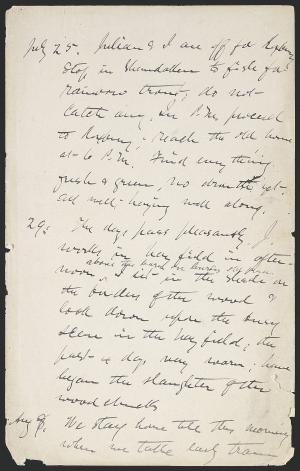 July 25. Julian & I are off for Roxbury
Stop in Shandaken to fish for
rainbow trout; do not
catch any, in P.M. proceed
to Roxbury; reach the old home
at 6 P.M. Find everything
fresh & green, no drouth yet.
All well - haying well along.
29: The days pass pleasantly, J.
works in hay field in after-
noon, I sit in the shade on
the borders of the wood &
look down upon the busy
scene in the hay field; the
past days very warm; have
begun the slaughter of the
wood chucks
Aug 8. We stay here till this morning
when we take early train